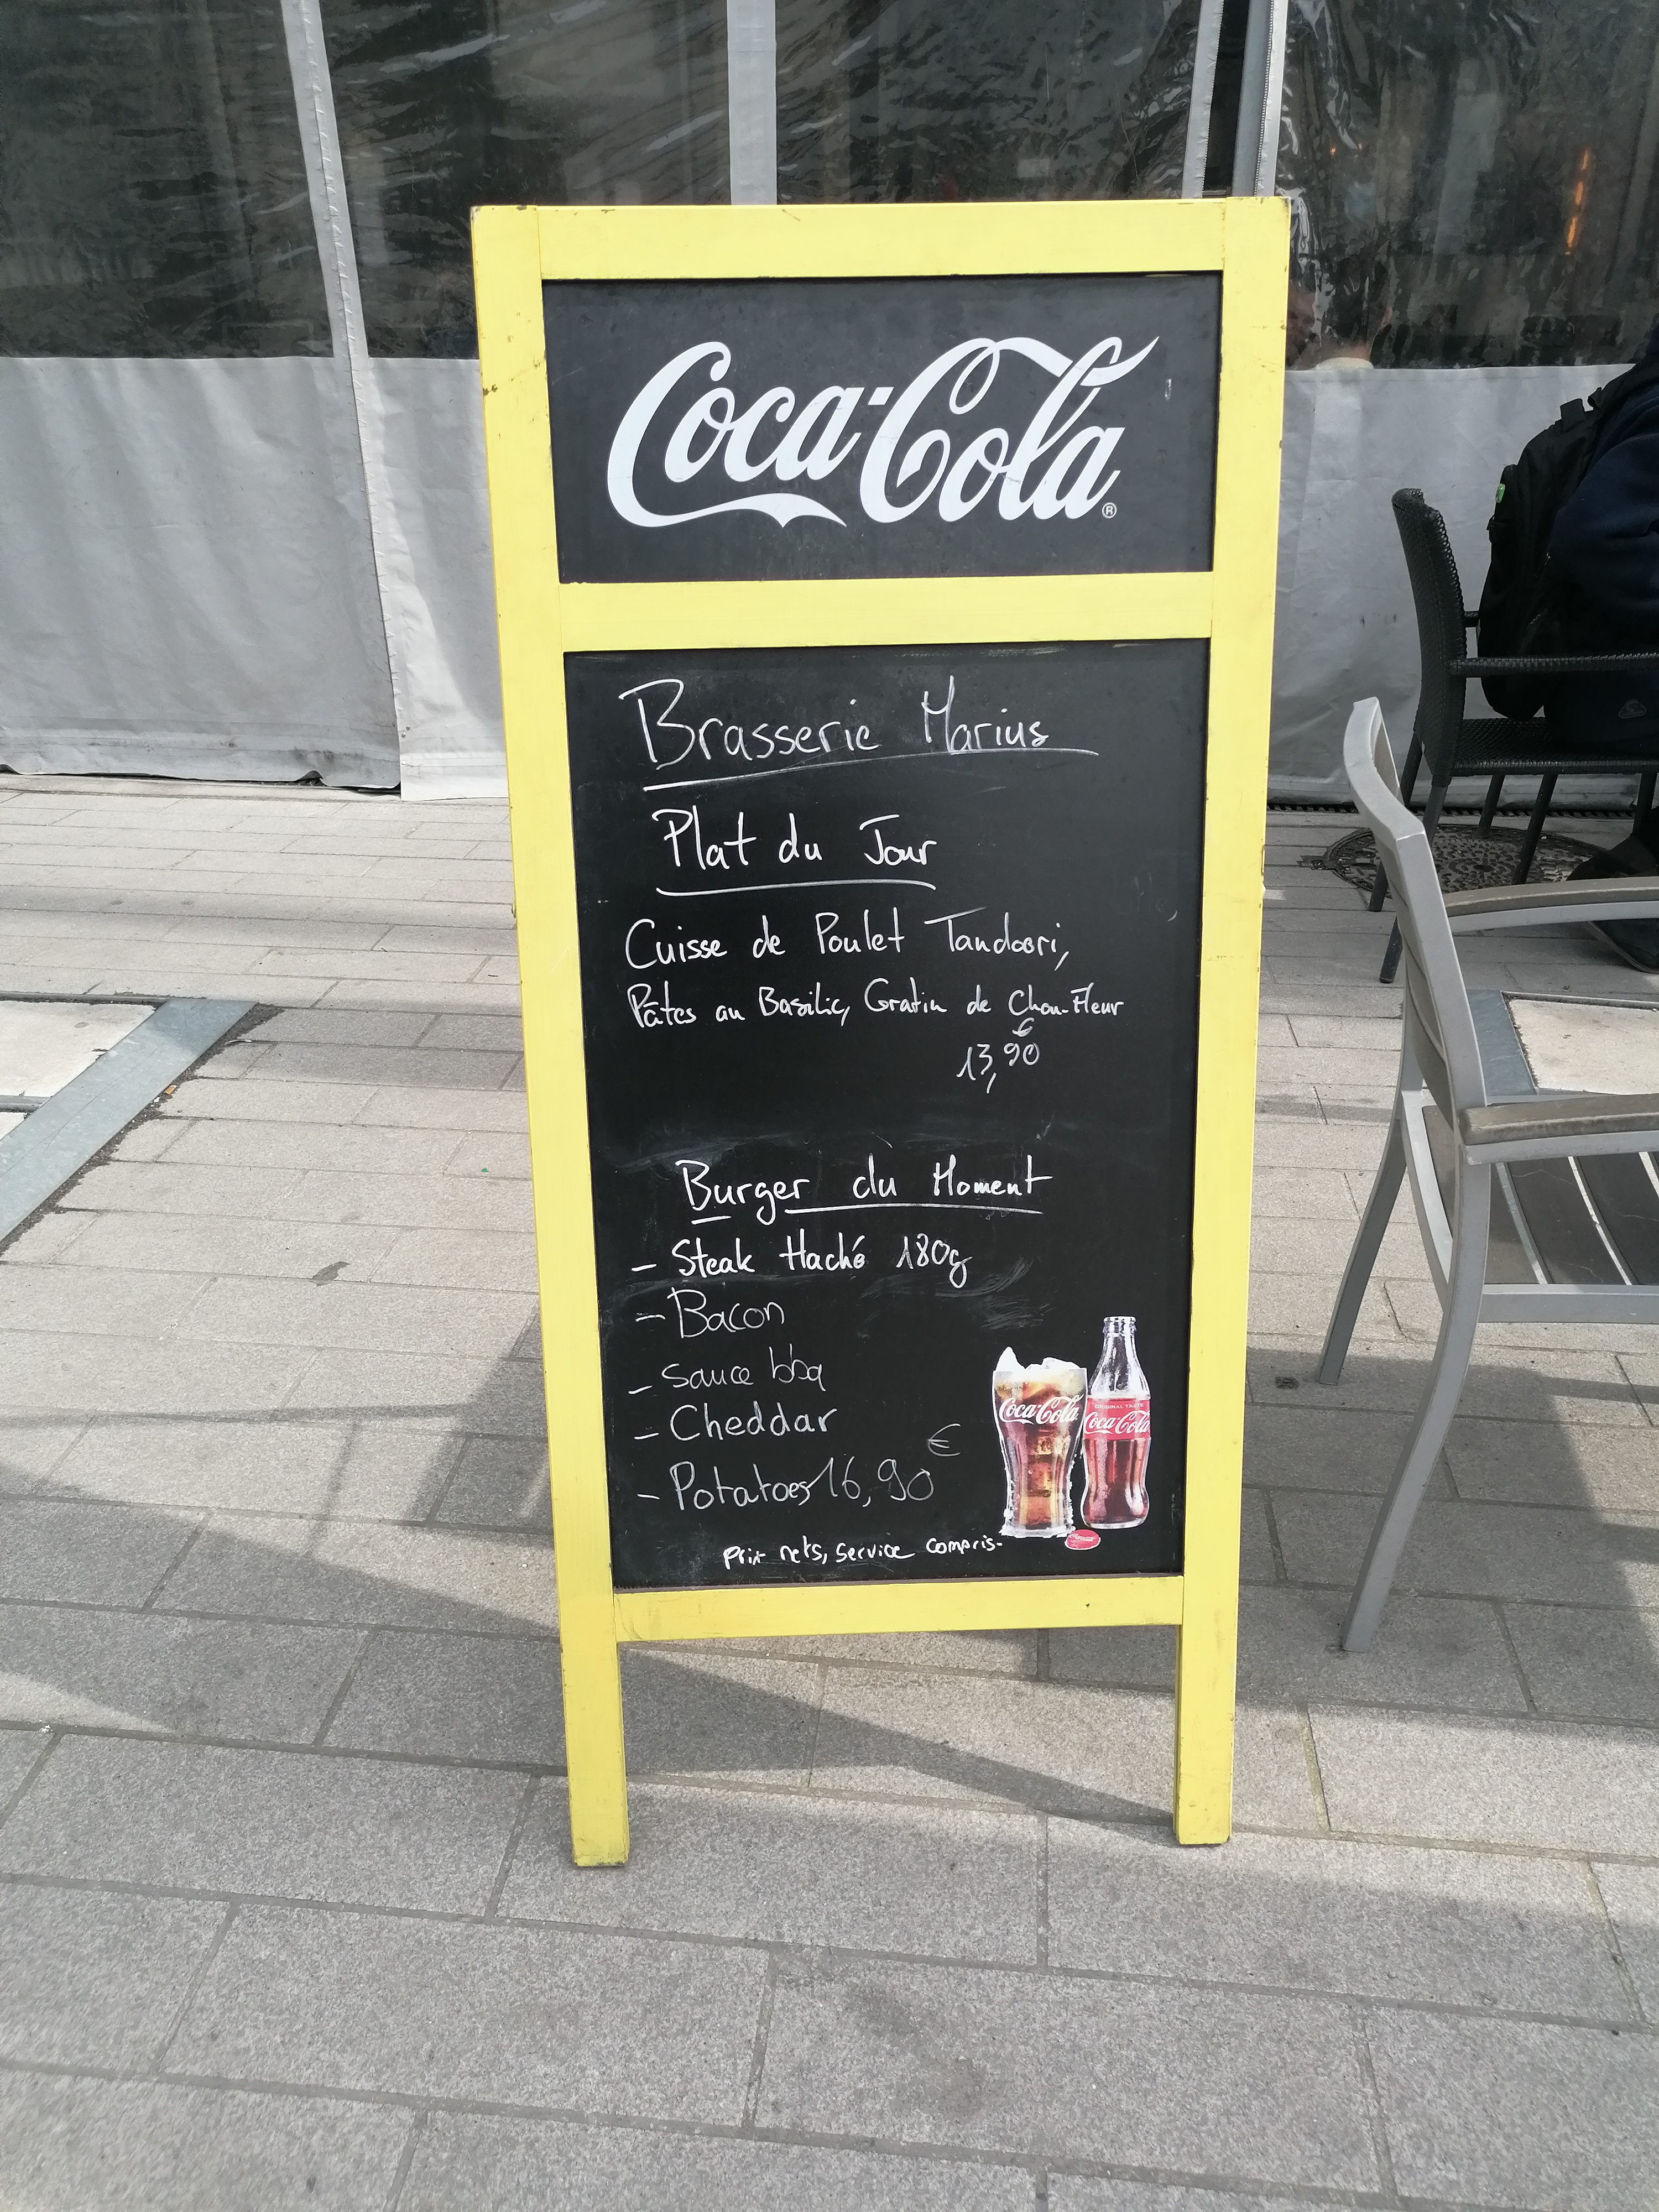 Coca-Cola®
Brasserie Marius
Plat du Jour
Cuisse de Poulet Tandoori,
Pâtes au Basilic, Gratin de Chou-Fleur
13,90€
Burger du Moment
- Steak Haché 180g
- Bacon
- sauce bbq
- Cheddar
- Potatoes 16,90€
prix nets, service compris-
Coca-Cola
ORIGINAL TASTE
Coca-Cola